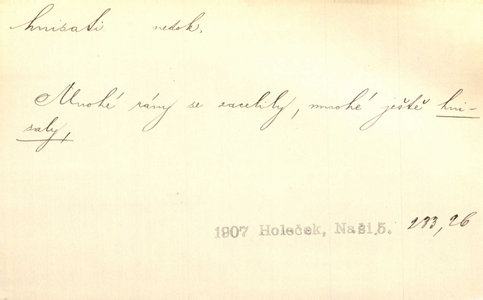 hnisati nedok.
Mnohé rány se zacelily, mnohé ještě hni-
saly,
1907 Holeček, Naši 5. 233,26